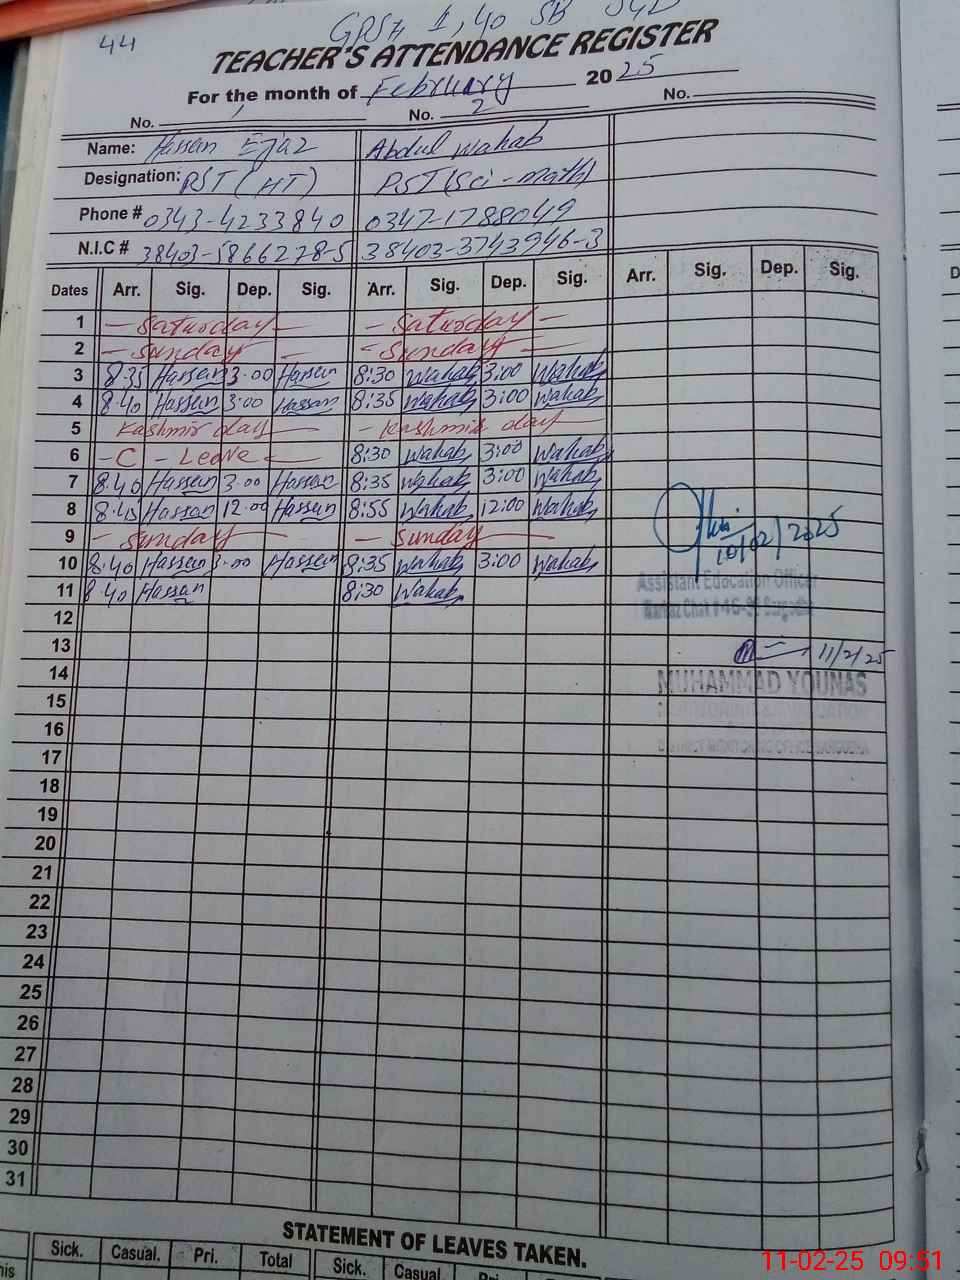 44
TEACHER'S ATTENDANCE REGISTER
For the month of February 2025
No. 1 No. 2 No.
Name: Hassan Ejaz Abdul Wahab
Designation: PST (HT) PST (Sci-math)
Phone # 0343-4233840 0347-1788049
N.I.C # 38403-5866278-5 38403-3743946-3
Dates Arr. Sig. Dep. Sig. Arr. Sig. Dep. Sig. Arr. Sig. Dep. Sig.
1 - Saturday - - Saturday -
2 - Sunday - - Sunday -
3 8:35 Hassan 3:00 Hassan 8:30 Wahab 3:00 Wahab
4 8:40 Hassan 3:00 Hassan 8:35 Wahab 3:00 Wahab
5 Kashmir day - - Kashmir day -
6 - C - Leave - 8:30 Wahab 3:00 Wahab
7 8:40 Hassan 3:00 Hassan 8:35 Wahab 3:00 Wahab
8 8:45 Hassan 12:00 Hassan 8:55 Wahab 12:00 Wahab
9 - Sunday - - Sunday -
10 8:40 Hassan 3:00 Hassan 8:35 Wahab 3:00 Wahab
11 8:40 Hassan 8:30 Wahab
10/02/2025
Assistant Education Officer
12
13
11/2/25
14
MUHAMMAD YOUNAS
15
16
17
18
19
20
21
22
23
24
25
26
27
28
29
30
31
STATEMENT OF LEAVES TAKEN.
Sick. Casual. Pri. Total Sick. Casual.
11-02-25 09:51